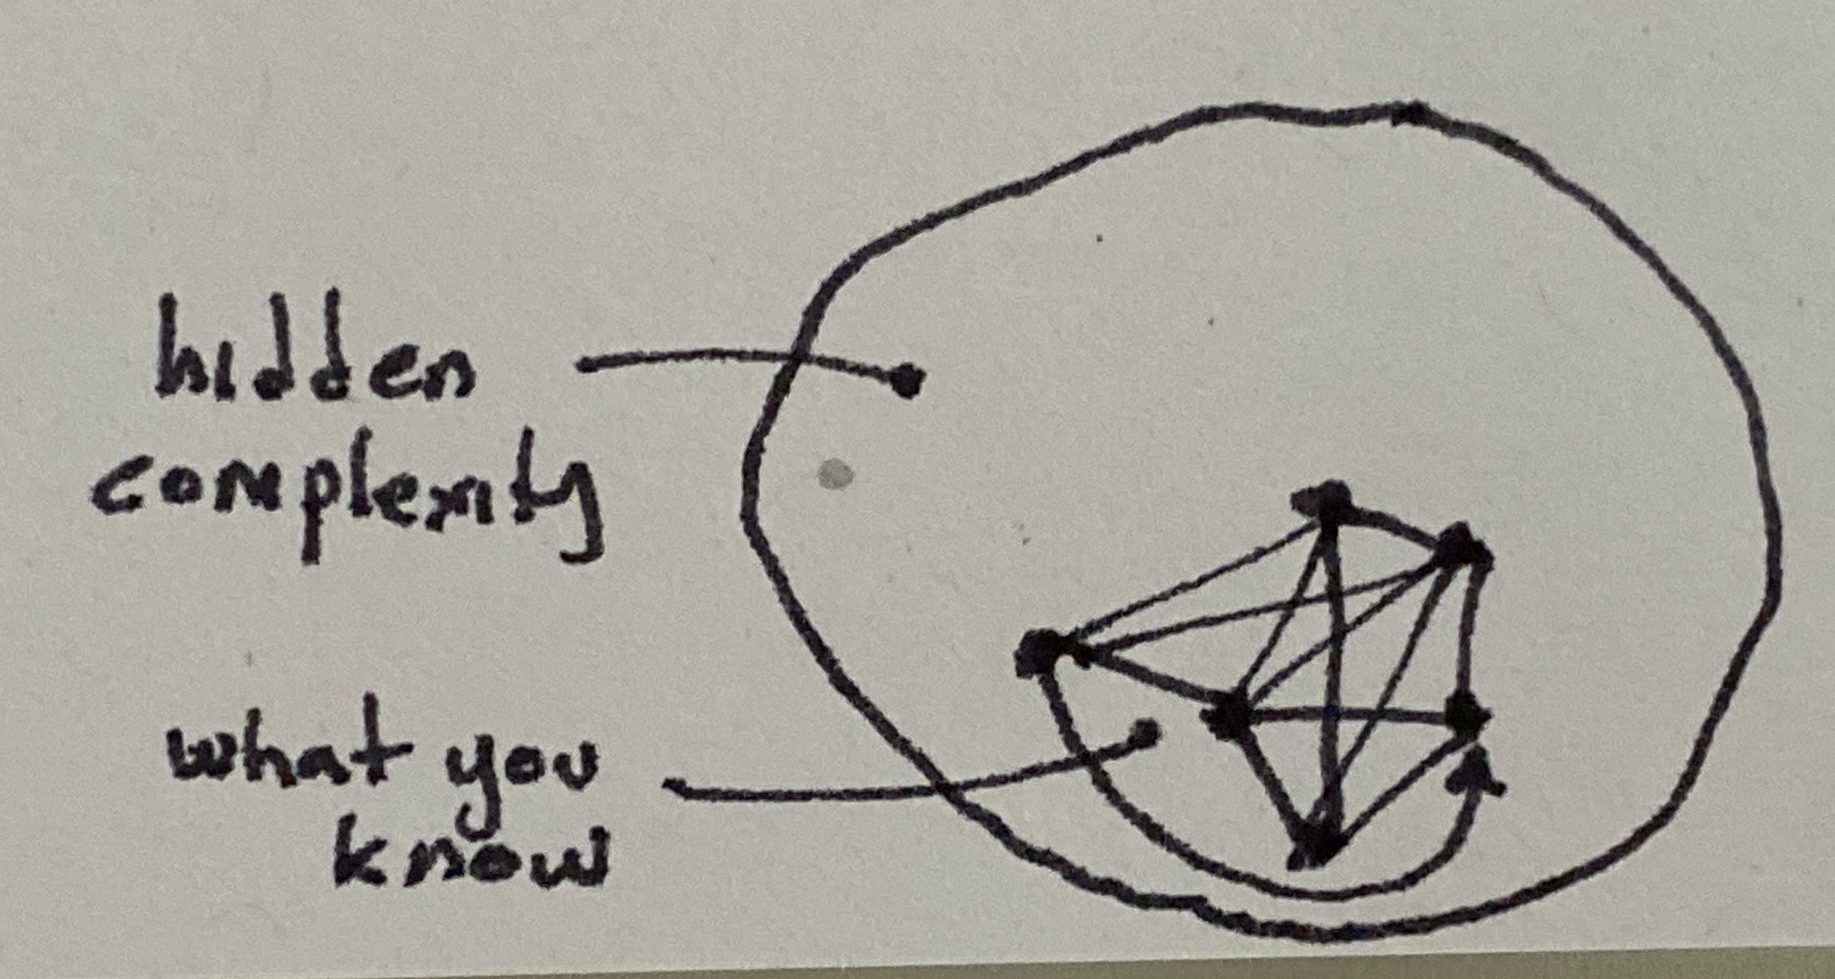 hidden
complexity
what you
know